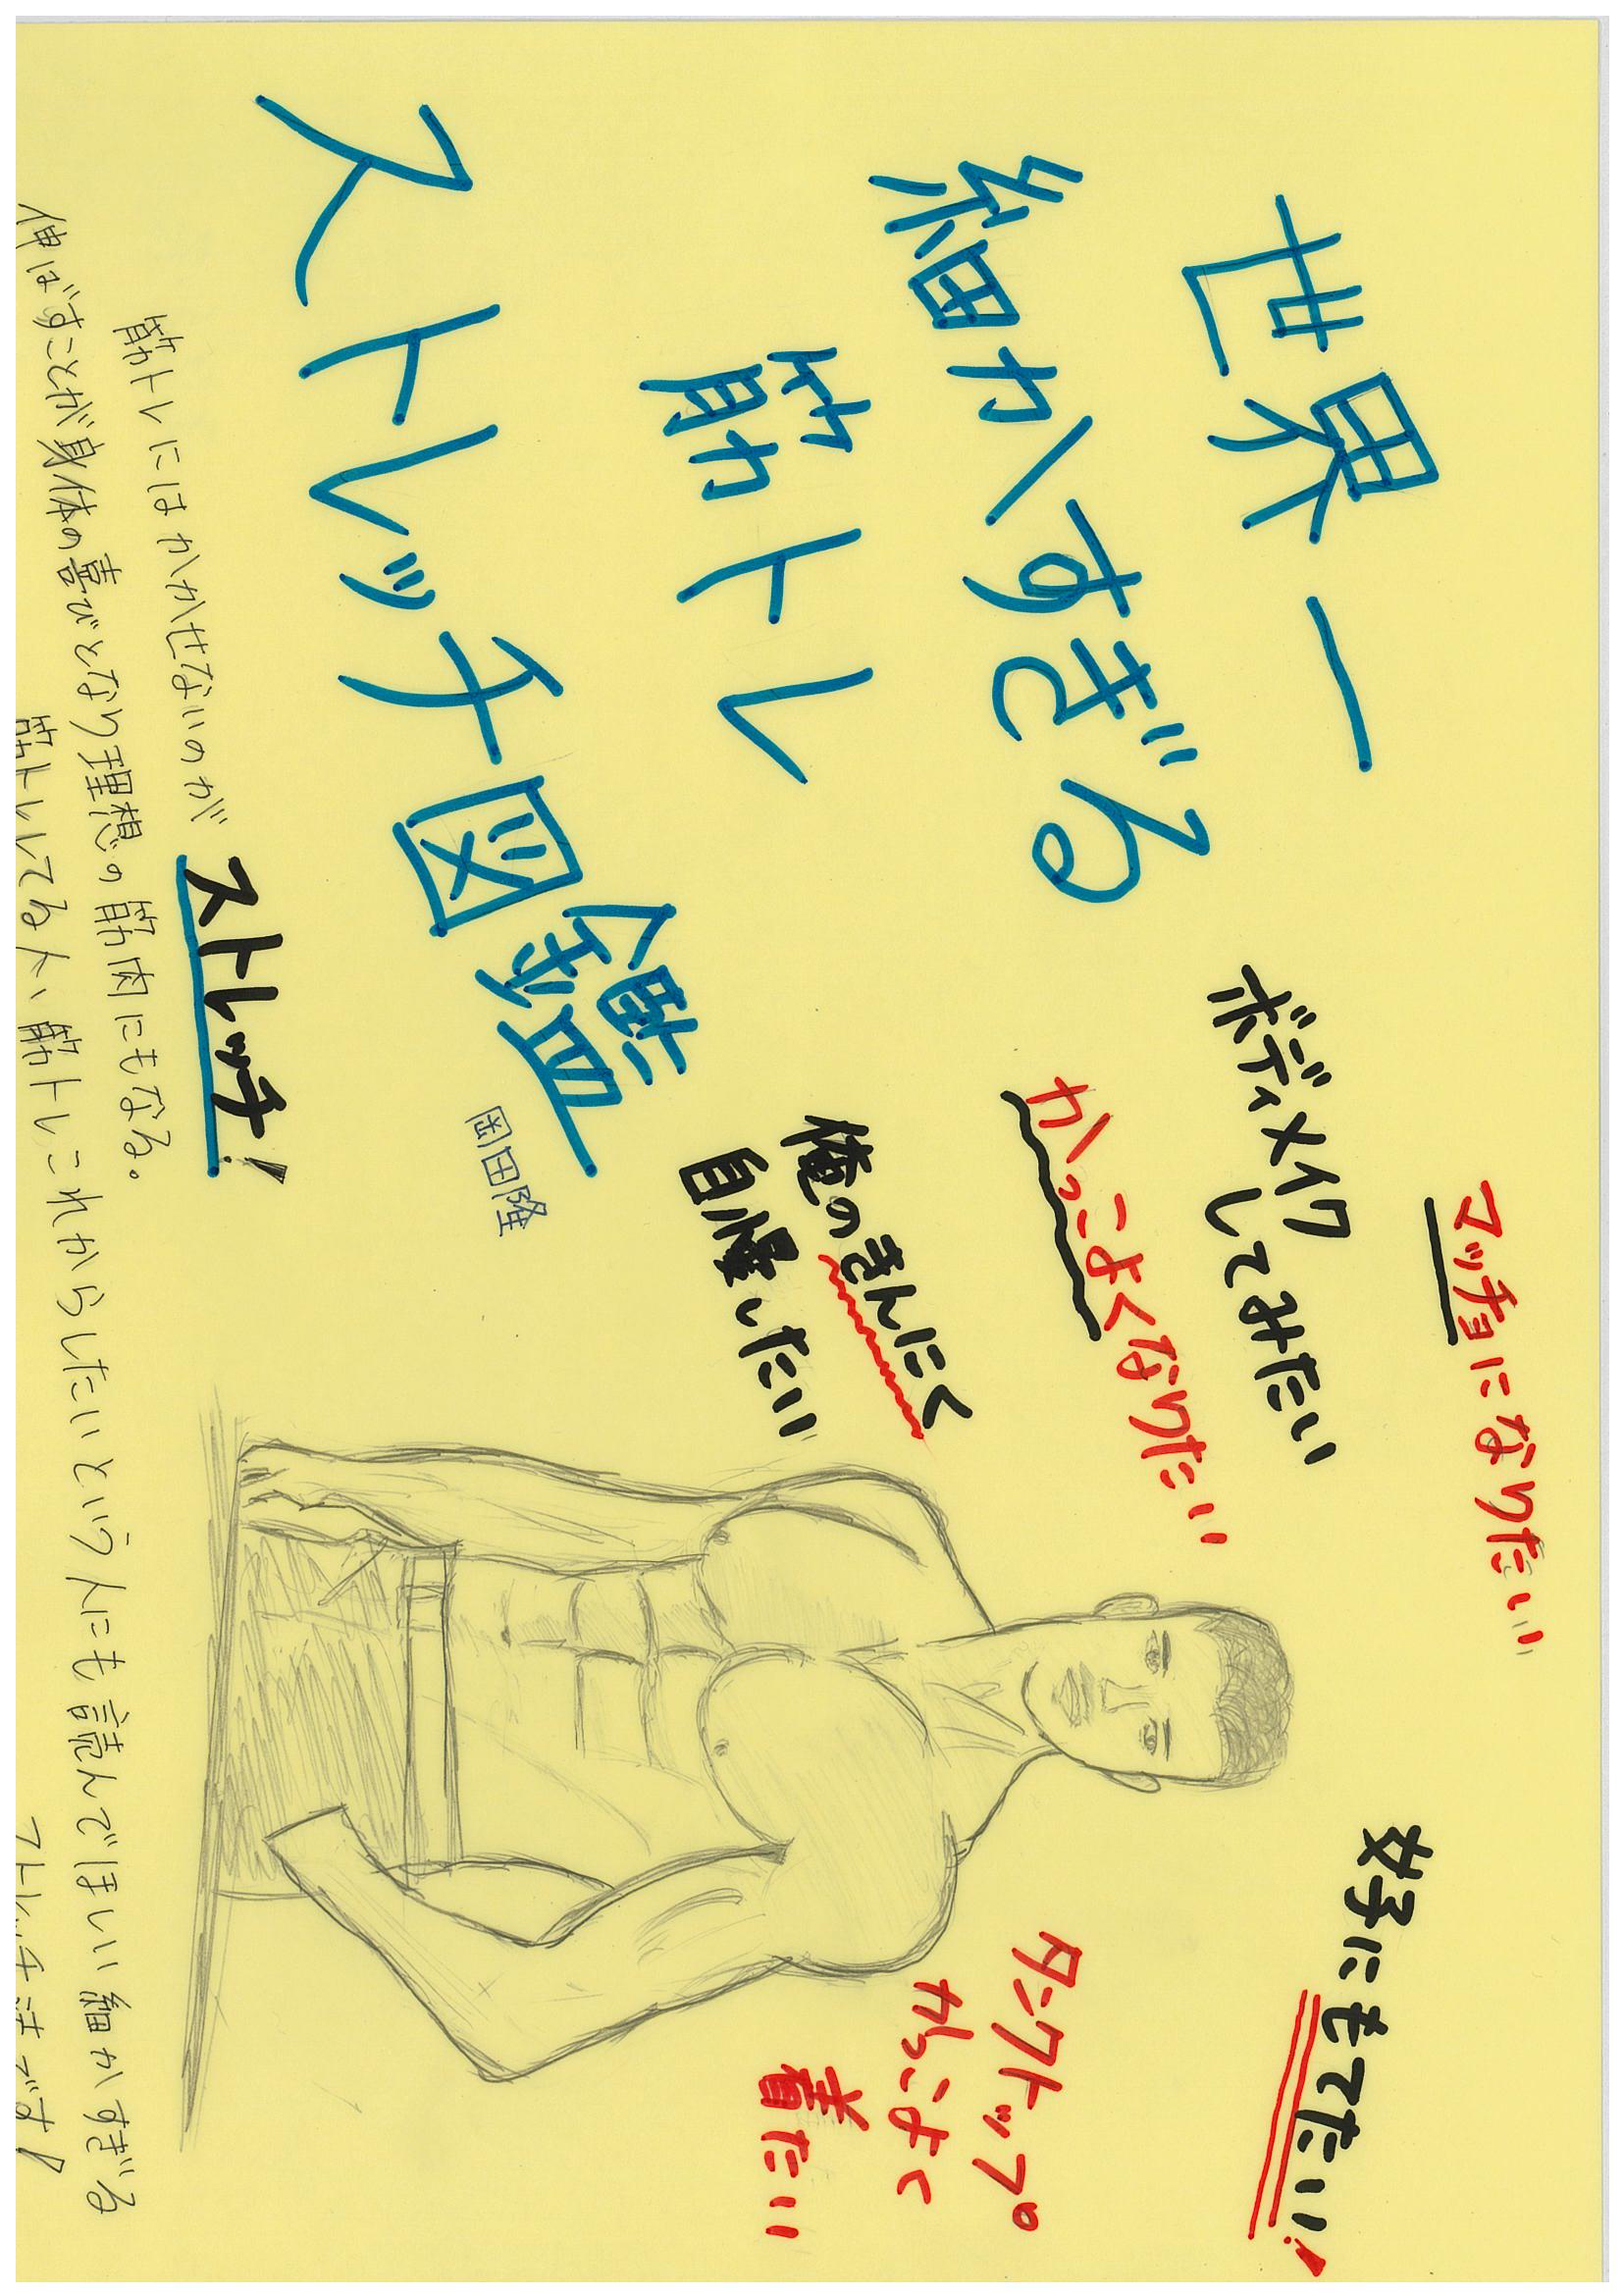 世界一
細かすぎる
筋トレ
ストレッチ図鑑
岡田隆
マッチョになりたい
ボディメイクしてみたい
かっこよくなりたい
俺のきんにく
自慢したい
女子にもてたい!
タンクトップ
かっこよく
着たい
筋トレにはかかせないのが ストレッチ!
伸ばすことが身体の喜びとなり理想の筋肉にもなる。
筋トレしてる人、筋トレこれからしたいという人にも読んでほしい細かすぎる
ストレッチ法です!